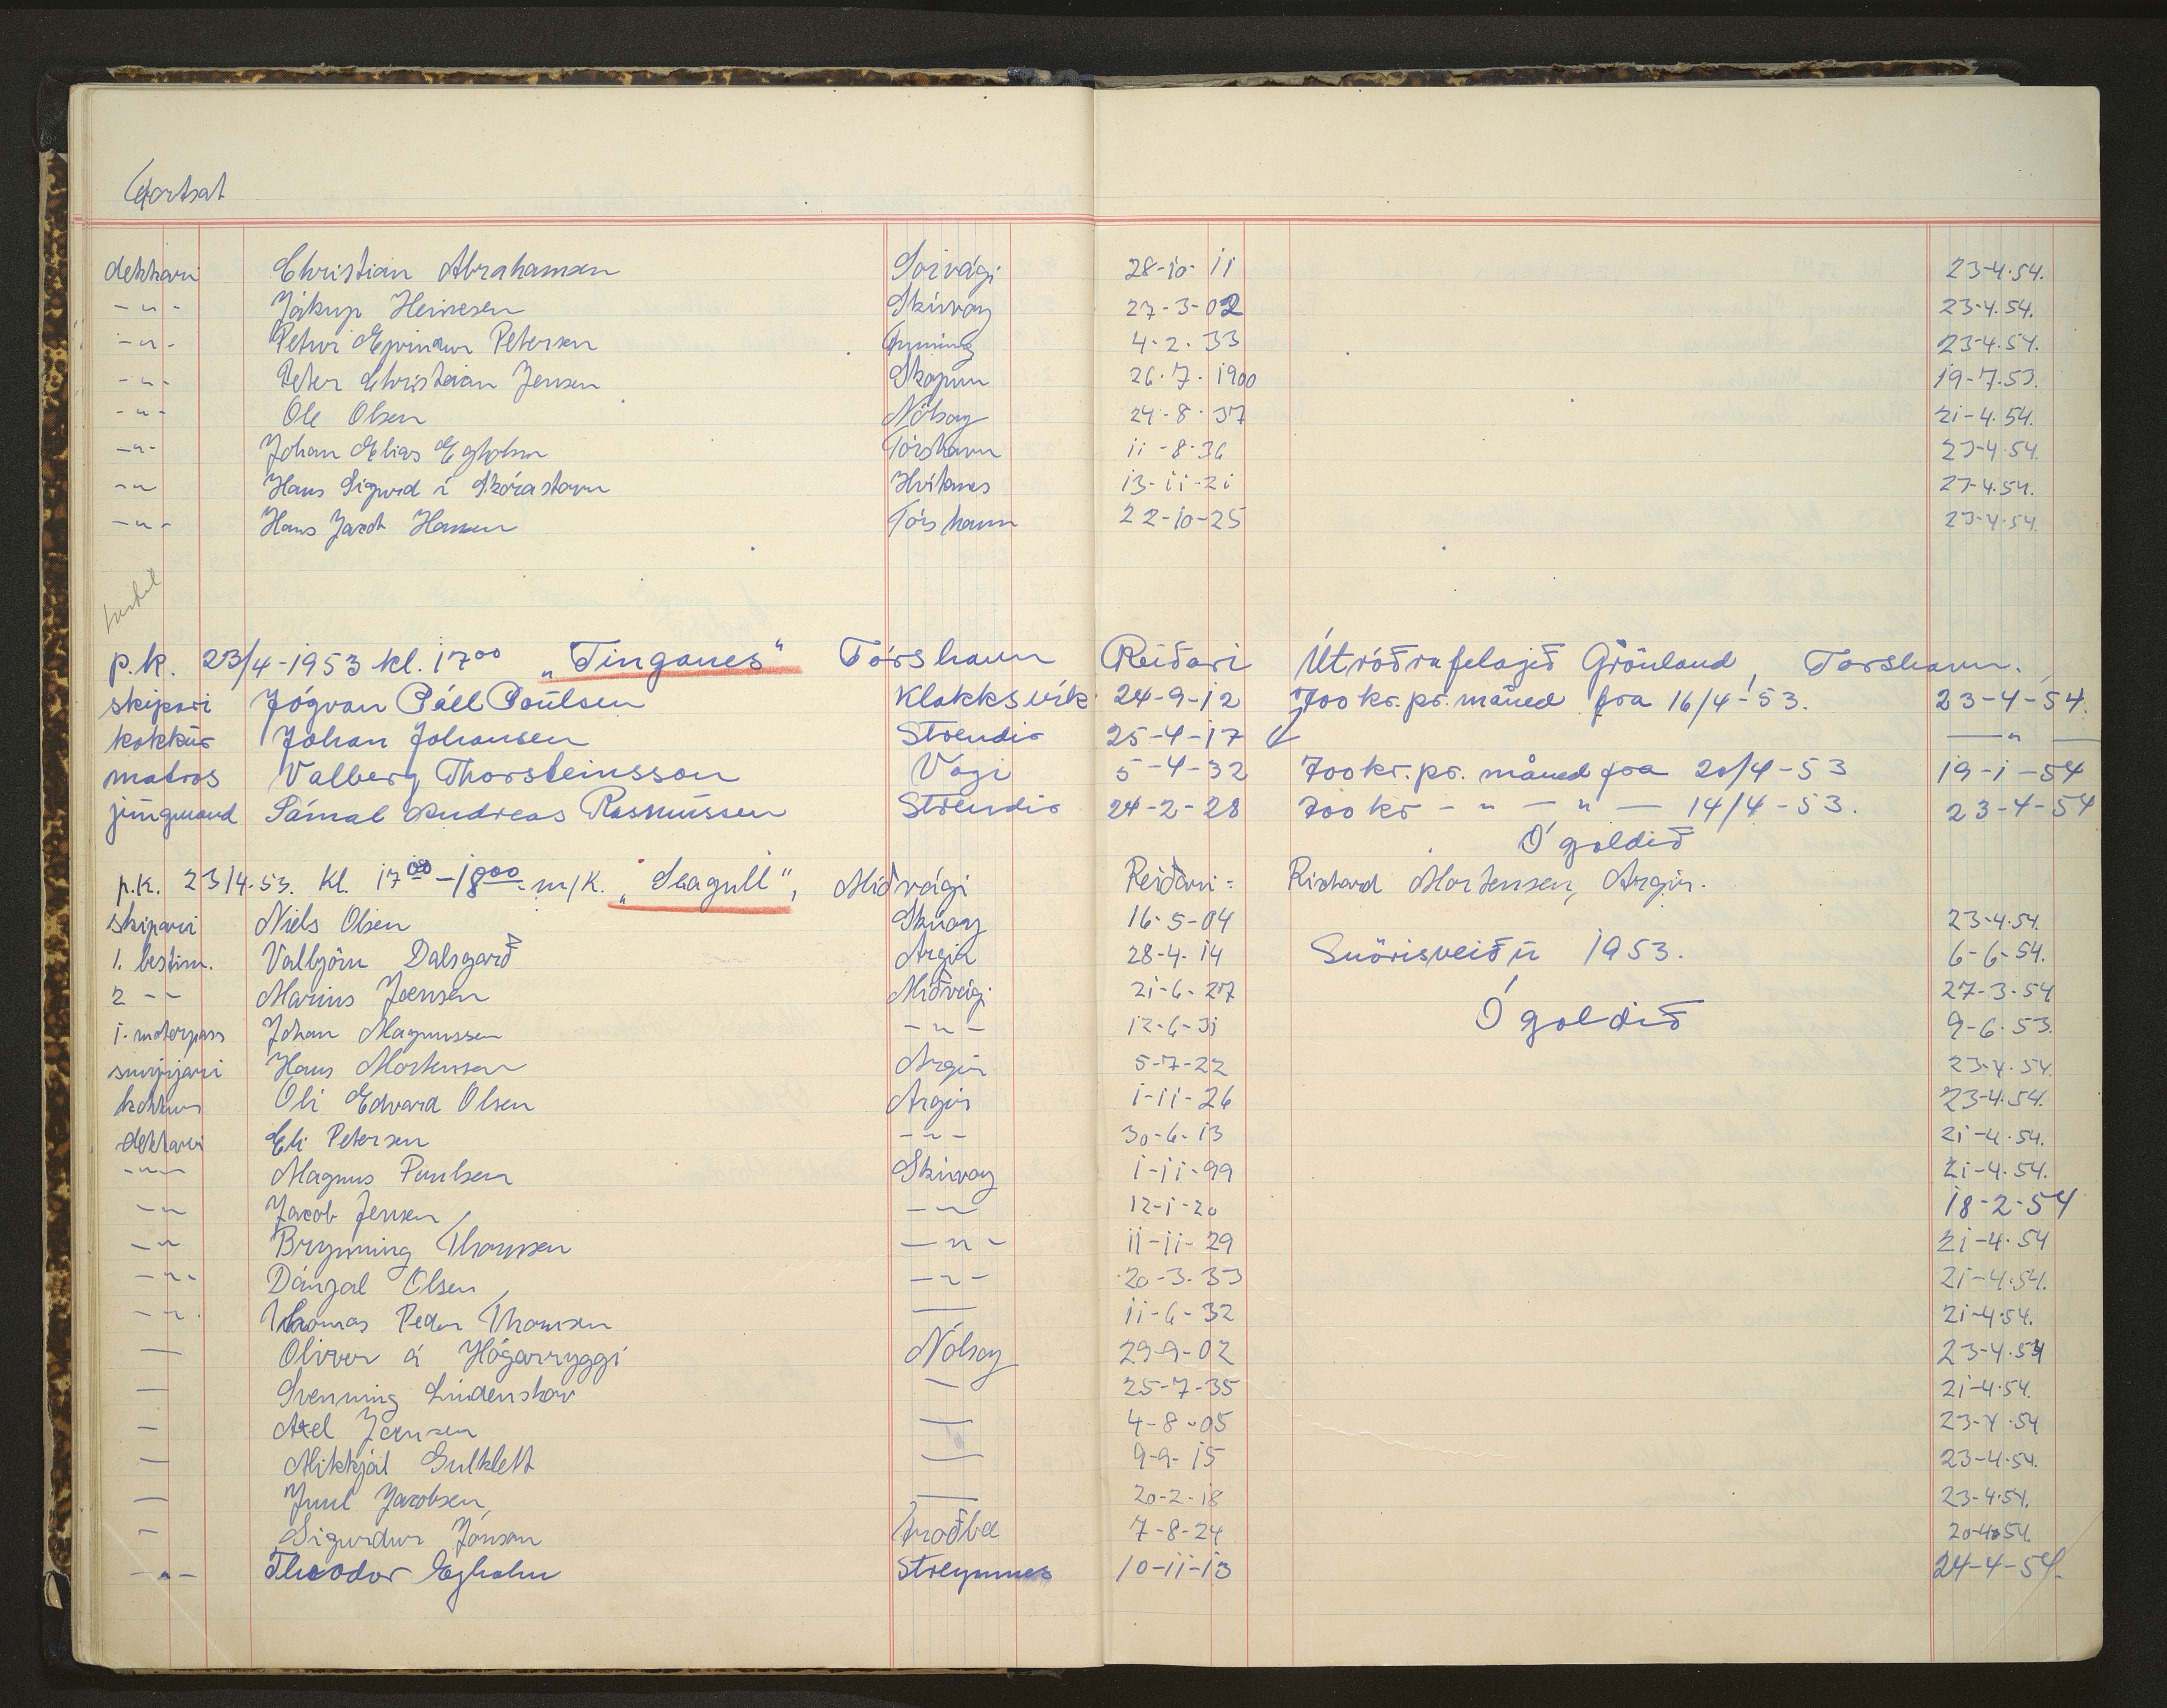 Fortsat
dekkari Christian Abrahamsen Sörvági 28-10-11 23-4-54.
-"- Jákup Heinesen Skúvoy 27-3-02 23-4.54.
-"- Petur Eyvindur Petersen Funning 4-2-33 23-4.54.
-"- Peter Christian Jensen Skopun 26-7-1900 19-7-53.
-"- Ole Olsen Nólsoy 24-8-37 21-4.54.
-"- Johan Elias Egholm Tórshavn 11-8-36 23-4.54.
-"- Hans Sigurd í Skórastovu Hvítanes 13-11-21 23-4.54.
-"- Hans Jacob Hansen Tórshavn 22-10-25 23-4.54.
p.k. 23/4-1953 kl. 17⁰⁰ „Tinganes" Tórshavn Reiðari Útróðrafelagið Grönland, Torshavn.
skipari Jógvan Páll Poulsen Klakksvík 24-9-12 700 kr. pr. måned fra 16/4-53. 23-4-54.
kokkur Johan Johansen Strendir 25-4-17 — " —
matros Valberg Thorsteinsson Vági 5-4-32 700 kr. pr. måned fra 20/4-53 19-1-54
jungmand Sámal Andreas Rasmussen Strendir 24-2-28 700 kr - " - " - 14/4-53. 23-4-54
Ógoldið
p.k. 23/4.53. Kl. 17⁰⁰-18⁰⁰ m/k. „Seagull", Miðvági Reiðari: Richard Mortensen, Argir.
skipari Niels Olsen Skúvoy 16-5-04 23-4.54.
1. bestm. Valbjörn Dalsgarð Argir 28-4-14 Snörisveiðu 1953. 6-6-54.
2 -"- Marius Joensen Miðvági 21-6-27 27-3-54
1. motorpass Johan Magnussen -"- 12-6-31 Ógoldið 9-6-53.
smyrjari Hans Mortensen Argir 5-7-22 23-4.54.
kokkur Oli Edvard Olsen Argir 1-11-26 23-4.54.
dekkari Eli Petersen -"- 30-6-13 21-4.54.
-"- Magnus Poulsen Skúvoy 1-11-99 21-4.54.
-"- Jacob Jensen -"- 12-1-20 18-2-54
-"- Brynning Thomsen -"- 11-11-29 21-4-54
-"- Dánjal Olsen -"- 20-3-33 21-4.54.
-"- Thomas Peder Thomsen — 11-6-32 21-4.54.
— Olivur á Hógarryggi Nólsoy 29-9-02 23-4.54
— Svenning Lindenskov — 25-7-35 21-4.54.
— Axel Jensen — 4-8-05 23-4.54
— Mikkjál Gulklett — 9-9-15 23-4.54.
— Juul Jacobsen — 20-2-18 23-4.54.
— Sigurdur Jónsson Froðba 7-8-24 20-4-54.
-"- Theodor Egholm Streymnes 10-11-13 24-4-54.